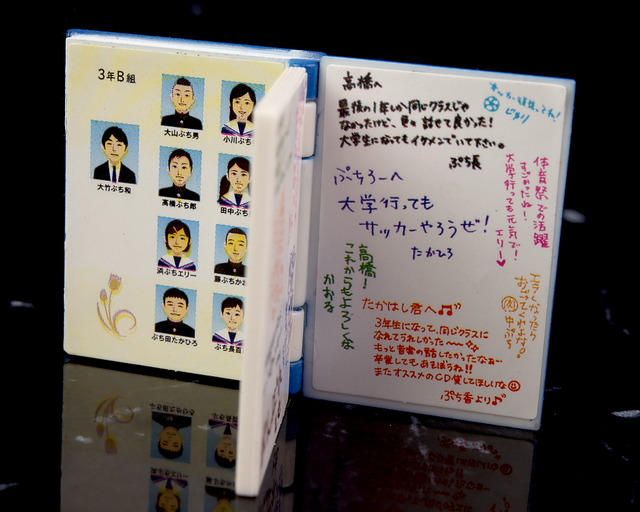 3年B組
大竹ぷち和
大山ぷち男
小川ぷち
高橋ぷち郎
田中ぷち
浜ぷちエリー
藤ぷちか
ぷち田たかひろ
ぷち長
高橋へ
最後の1年しか同じクラスじゃ
なかったけど、色々話せて良かった!
大学生になってもイケメンでいて下さい。
ぷち長
ぷちろーへ
大学行っても
サッカーやろうぜ!
たかひろ
体育祭での活躍
すごかったね!
大学行っても元気で!
エリー♥
高橋!
これからもよろしくな
かおる
エラくなったら
おごってくれよな。
田中ぷち
たかはし君へ♫
3年生になって、同じクラスに
なれてうれしかった〜
もっと音楽の話したかったなぁー
卒業してもあそぼうね!!
またオススメのCD貸してほしいな
ぷち香より♪